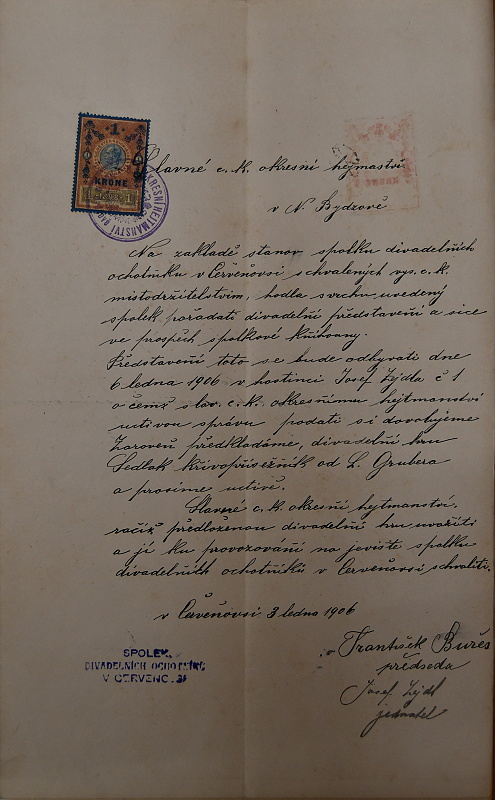 1
KRONE
OKRESNÍ HEJTMANSTVÍ
Slavné c. k. okresní hejtmaství
v N. Bydzově
Na zakladě stanov spolku divadelních
ochotniku v Červěňovsi schvalených vys. c. k.
mistodržitelstvim, hodla svrchu uvedený
spolek pořadati divadelní představení a sice
ve prospěch spolkové knihovny.
Představení toto se bude odbyvati dne
6 ledna 1906 v hostinci Josef Zejdla č 1
o čemž slav. c. k. okresnimu hejtmanství
uctivou správu podati si dovolujeme
Zaroveň předkladáme, divadelní hru
Sedlak křivopřísežník od L. Grubera
a prosime uctivě.
Slavné c. k. okresní hejtmanství.
račiž předloženou divadelní hru uvařiti
a jí ku provozování na jeviště spolku
divadelních ochotníků v Červeňovsi schvaliti.
v Červeňovsi 3 ledna 1906
SPOLEK
DIVADELNÍCH OCHOTNÍKŮ
V ČERVENO
František Bureš
předseda
Josef Zejdl
jednatel